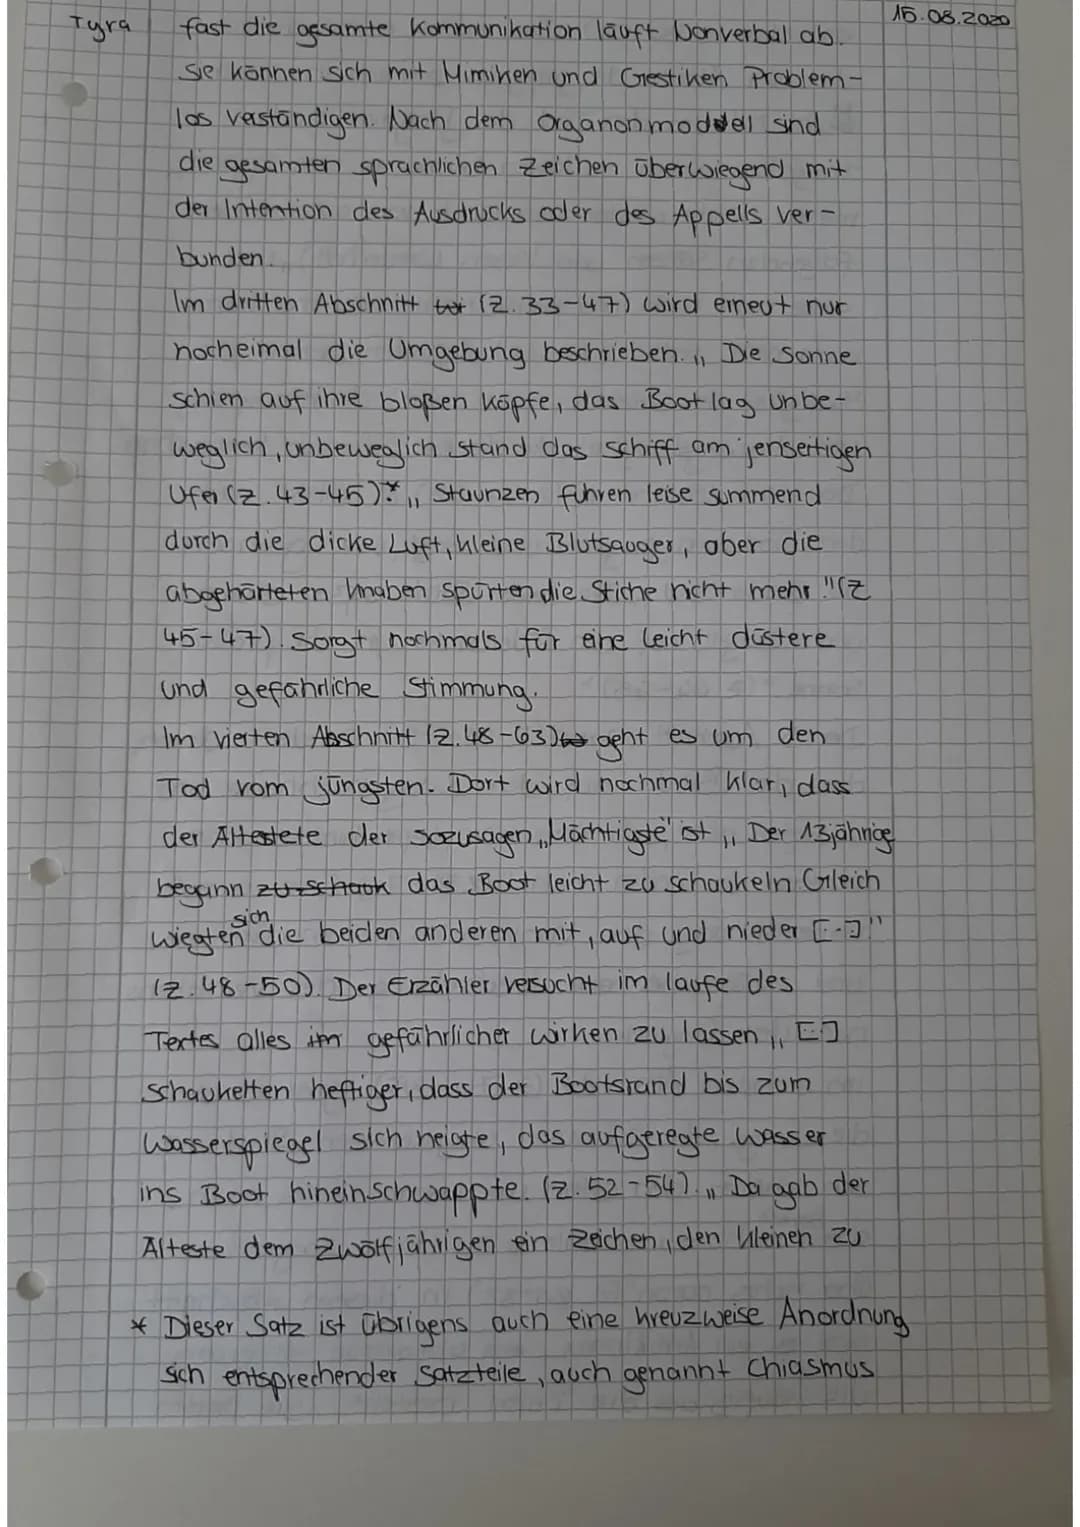 Tyra
15.08.2020
fast die gesamte Kommunikation läuft Nonverbal ab.
Sie können sich mit Mimiken und Gestiken Problem-
los verständigen. Nach dem Organonmodell sind
die gesamten sprachlichen Zeichen überwiegend mit
der Intention des Ausdrucks oder des Appells ver-
bunden.
Im dritten Abschnitt (Z. 33-47) wird erneut nur
nocheimal die Umgebung beschrieben. „ Die Sonne
schien auf ihre bloßen Köpfe, das Boot lag unbe-
weglich, unbeweglich stand das Schiff am jenseitigen
Ufer (Z. 43-45)."* „ Staunzen fuhren leise summend
durch die dicke Luft, kleine Blutsauger, aber die
abgehärteten Knaben spürten die Stiche nicht mehr."(Z
45-47). Sorgt nochmals für eine leicht düstere
und gefährliche Stimmung.
Im vierten Abschnitt (Z. 48-63) geht es um den
Tod vom jüngsten. Dort wird nochmal klar, dass
der Altestete der sozusagen „Mächtigste" ist „ Der 13jährige
begann zu schauk das Boot leicht zu schaukeln Gleich
wiegten sich die beiden anderen mit, auf und nieder [..]"
(Z. 48-50). Der Erzähler versucht im laufe des
Textes alles im gefährlicher wirken zu lassen „ [..]
schaukelten heftiger, dass der Bootsrand bis zum
Wasserspiegel sich neigte, das aufgeregte Wasser
ins Boot hineinschwappte. (Z. 52-54). „ Da gab der
Älteste dem Zwölfjährigen ein Zeichen, den Kleinen zu
* Dieser Satz ist übrigens auch eine kreuzweise Anordnung
sich entsprechender Satzteile, auch genannt Chiasmus